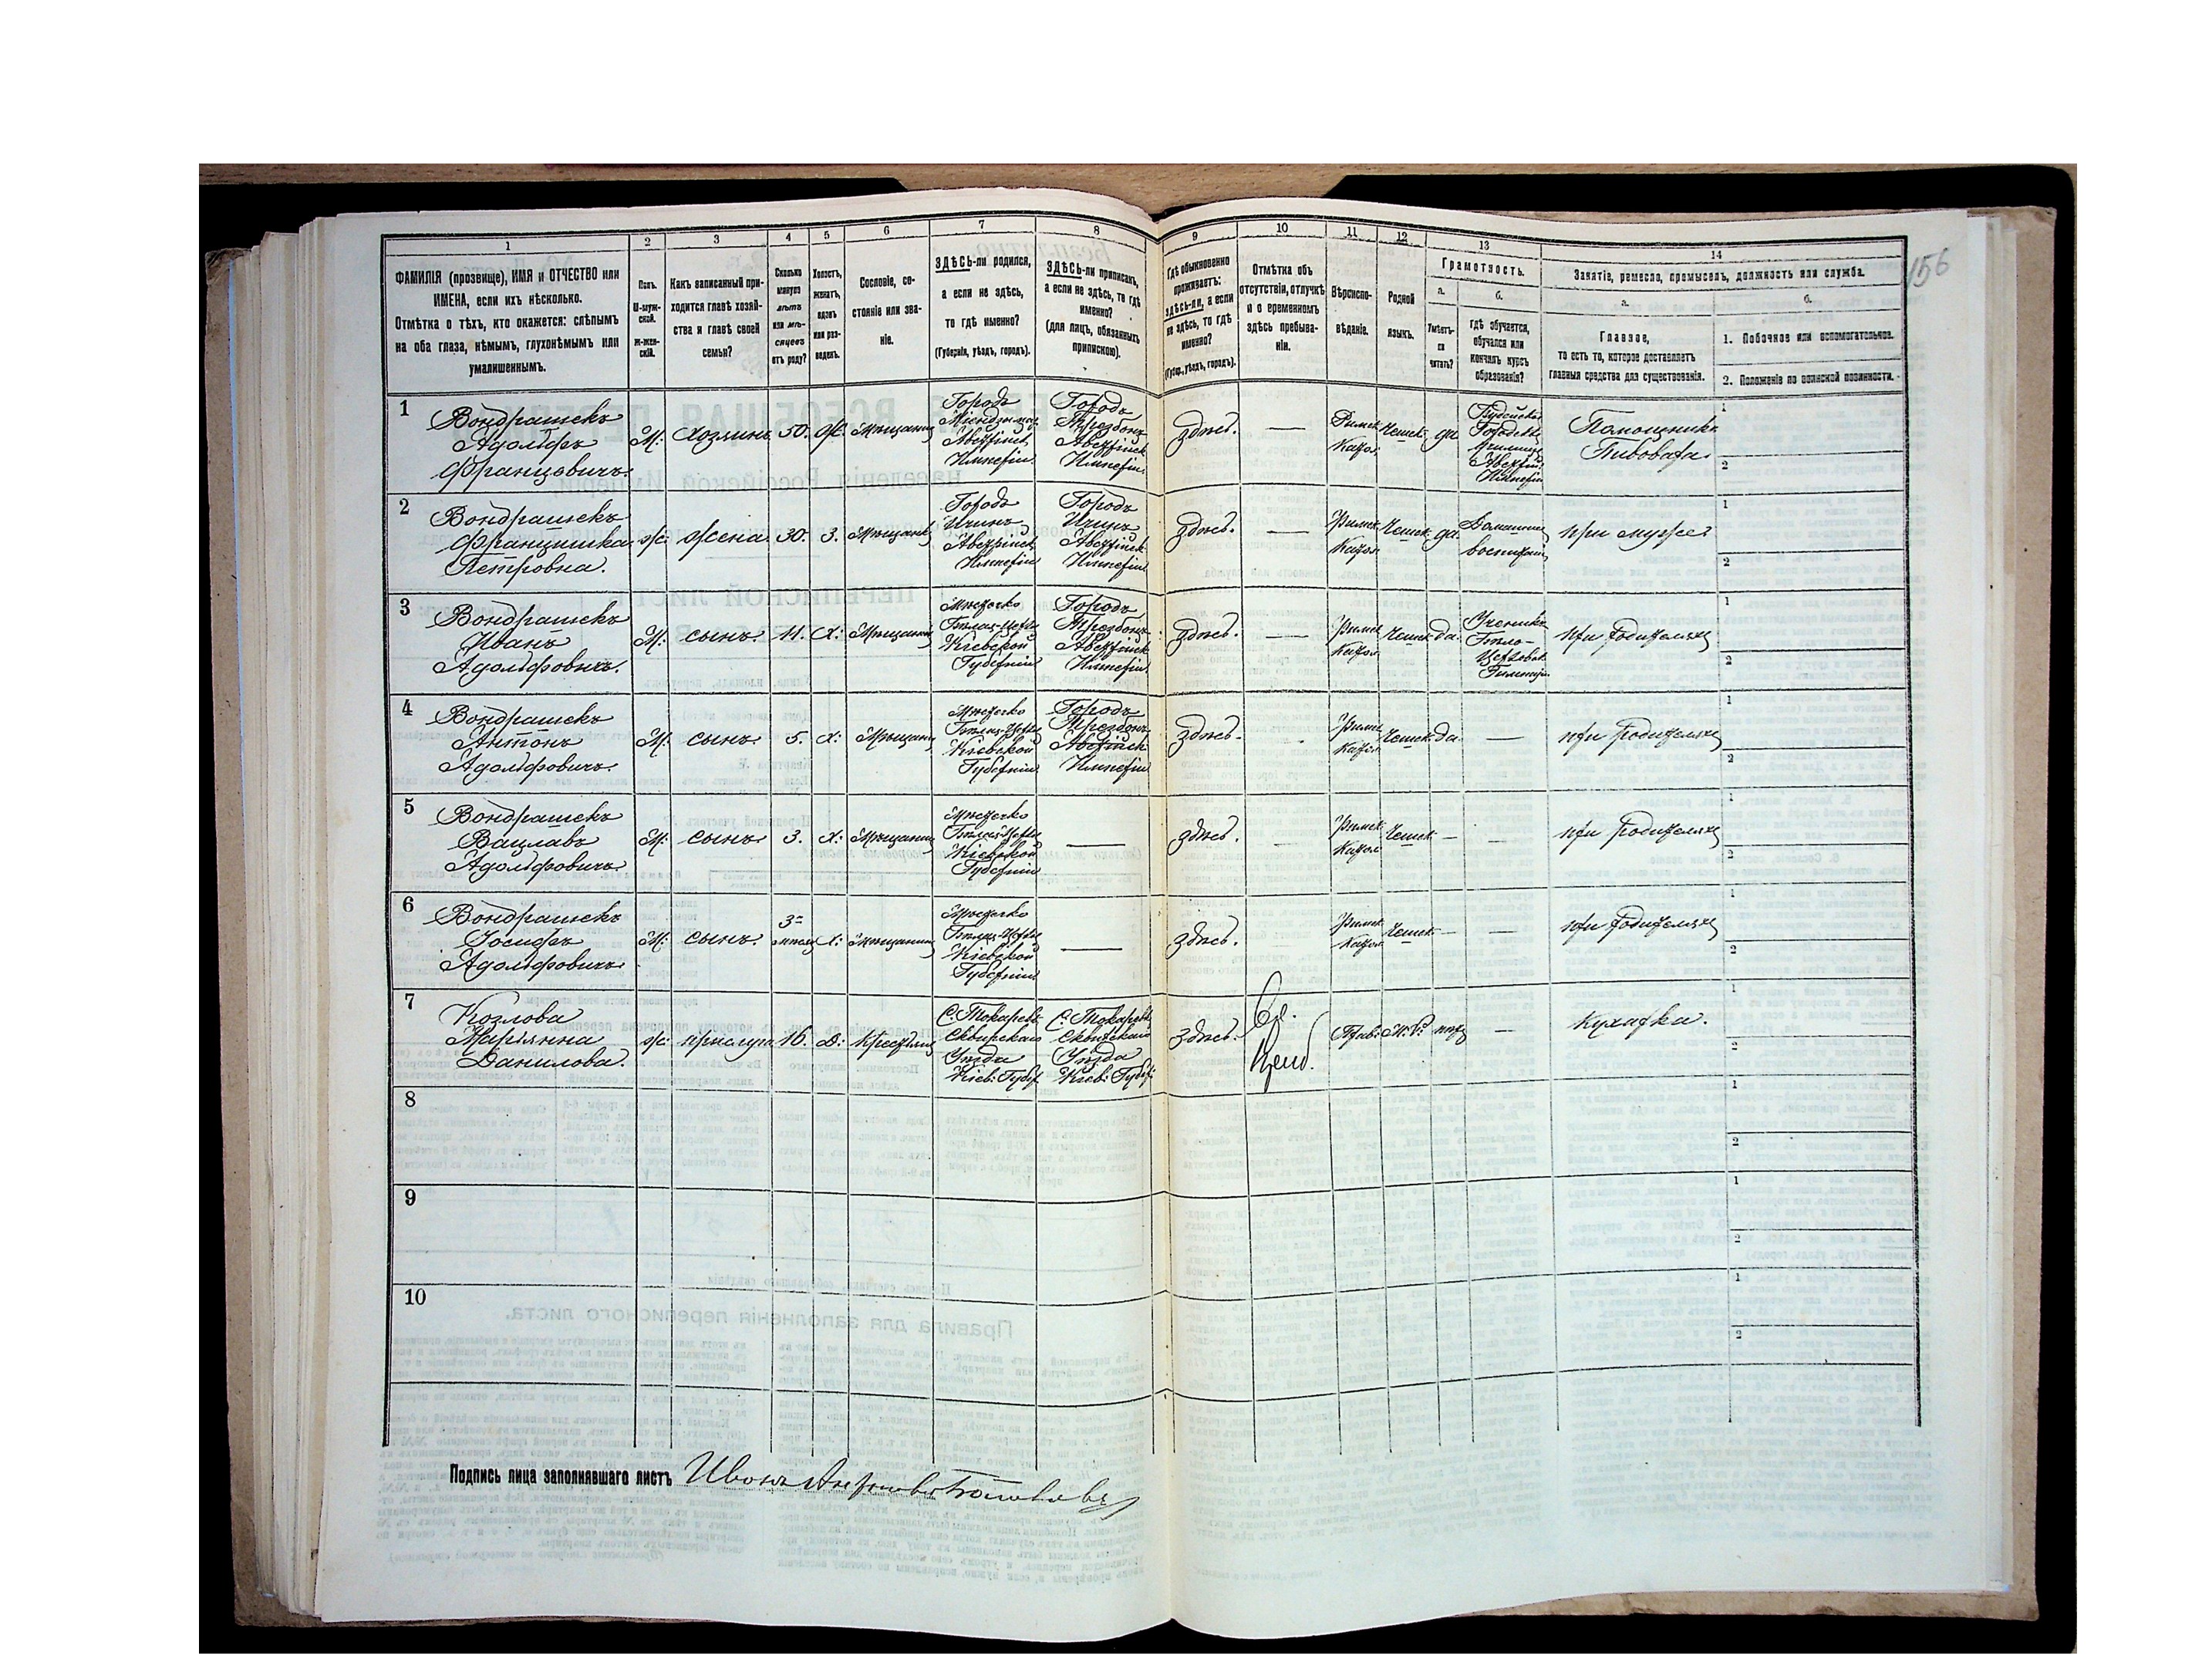 156
1 2 3 4 5 6 7 8 9 10 11 12 13 14
ФАМИЛІЯ (прозвище), ИМЯ и ОТЧЕСТВО или
ИМЕНА, если ихъ нѣсколько.
Отмѣтка о тѣхъ, кто окажется: слѣпымъ
на оба глаза, нѣмымъ, глухонѣмымъ или
умалишеннымъ.
Полъ.
М-муж-
ской.
ж-жен-
скій.
Какъ записанный при-
ходится главѣ хозяй-
ства и главѣ своей
семьи?
Сколько
минуло
лѣтъ
или мѣ-
сяцевъ
отъ роду?
Холостъ,
женатъ,
вдовъ
или раз-
веденъ.
Сословіе, со-
стояніе или зва-
ніе.
ЗДѢСЬ-ли родился,
а если не здѣсь,
то гдѣ именно?
(Губернія, уѣздъ, городъ).
ЗДѢСЬ-ли приписанъ,
а если не здѣсь, то гдѣ
именно?
(для лицъ, обязанныхъ
припискою).
Гдѣ обыкновенно
проживаетъ:
здѣсь-ли, а если
не здѣсь, то гдѣ
именно?
(Губер., уѣздъ, городъ).
Отмѣтка объ
отсутствіи, отлучкѣ
и о временномъ
здѣсь пребыва-
ніи.
Вѣроиспо-
вѣданіе.
Родной
языкъ.
Грамотность.
а.
Умѣетъ-
ли
читать?
б.
гдѣ обучается,
обучался или
кончилъ курсъ
образованія?
Занятіе, ремесло, промыселъ, должность или служба.
а.
Главное,
то есть то, которое доставляетъ
главныя средства для существованія.
б.
1. Побочное или вспомогательное.
2. Положеніе по воинской повинности.
1
Вондрашекъ
Адольфъ
Францовичъ
М:
Хозяинъ
50.
Ж:
Мѣщанинъ
Городъ
Австрійск.
Имперіи
Городъ
Австрійск
Имперіи
здѣсь.
—
Римск
Катол.
Чешск.
да
Городск.
училище
Австрій.
Имперіи
Помощникъ
Пивовара.
1
2
2
Вондрашекъ
Францишка
Петровна.
ж:
жена.
30.
З.
Мѣщанка
Городъ
Ичинъ
Австрійск
Имперіи
Городъ
Ичинъ
Австрійск
Имперіи
здѣсь.
—
Римск
Катол
Чешск
да
Домашнее
воспитаніе
при мужѣ
1
2
3
Вондрашекъ
Иванъ
Адольфовичъ.
М:
сынъ.
11.
Х:
Мѣщанинъ
Мѣстечко
Бѣлая-Церковь
Кіевской
Губерніи
Городъ
Австрійск
Имперіи
здѣсь.
—
Римск
Катол
Чешск
да.
Ученикъ
Бѣло-
Церковск.
Гимназіи
при родителяхъ
1
2
4
Вондрашекъ
Антонъ
Адольфовичъ.
М:
сынъ
5.
х:
Мѣщанинъ
Мѣстечко
Бѣлая-Церковь
Кіевской
Губерніи
Городъ
Австрійск
Имперіи
здѣсь.
Римск
Катол
Чешск
да
—
при родителяхъ
1
2
5
Вондрашекъ
Вацлавъ
Адольфовичъ
М:
сынъ
3.
х:
Мѣщанинъ
Мѣстечко
Бѣлая-Церковь
Кіевской
Губерніи
—
здѣсь.
—
Римск
Катол
Чешск
—
—
при родителяхъ
1
2
6
Вондрашекъ
Іосифъ
Адольфовичъ
М:
сынъ.
3-
мѣсяц
х:
Мѣщанинъ
Мѣстечко
Бѣлая-Церковь
Кіевской
Губерніи
—
здѣсь.
Римск
Катол
Чешск
—
—
при родителяхъ
1
2
7
Козлова
Маріянна
Данилова.
ж:
прислуга
16.
Д:
Крестьянка
С. Токаревка
Сквирскаго
Уѣзда
Кіев: Губер
С. Токаревка
Сквирскаго
Уѣзда
Кіев: Губер:
здѣсь.
Прав:
М. Р.
нѣтъ
—
Кухарка.
1
2
8
1
2
9
1
2
10
1
2
Подпись лица заполнявшаго листъ Иванъ